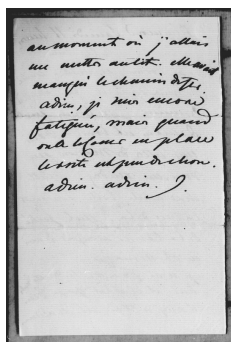 au moment où j'allais
me mettre au lit.
manqué le chemin de fer.
adieu, je suis encore
fatigué, mais quand
on a le cœur en place
le reste est peu de chose.
adieu. adieu.